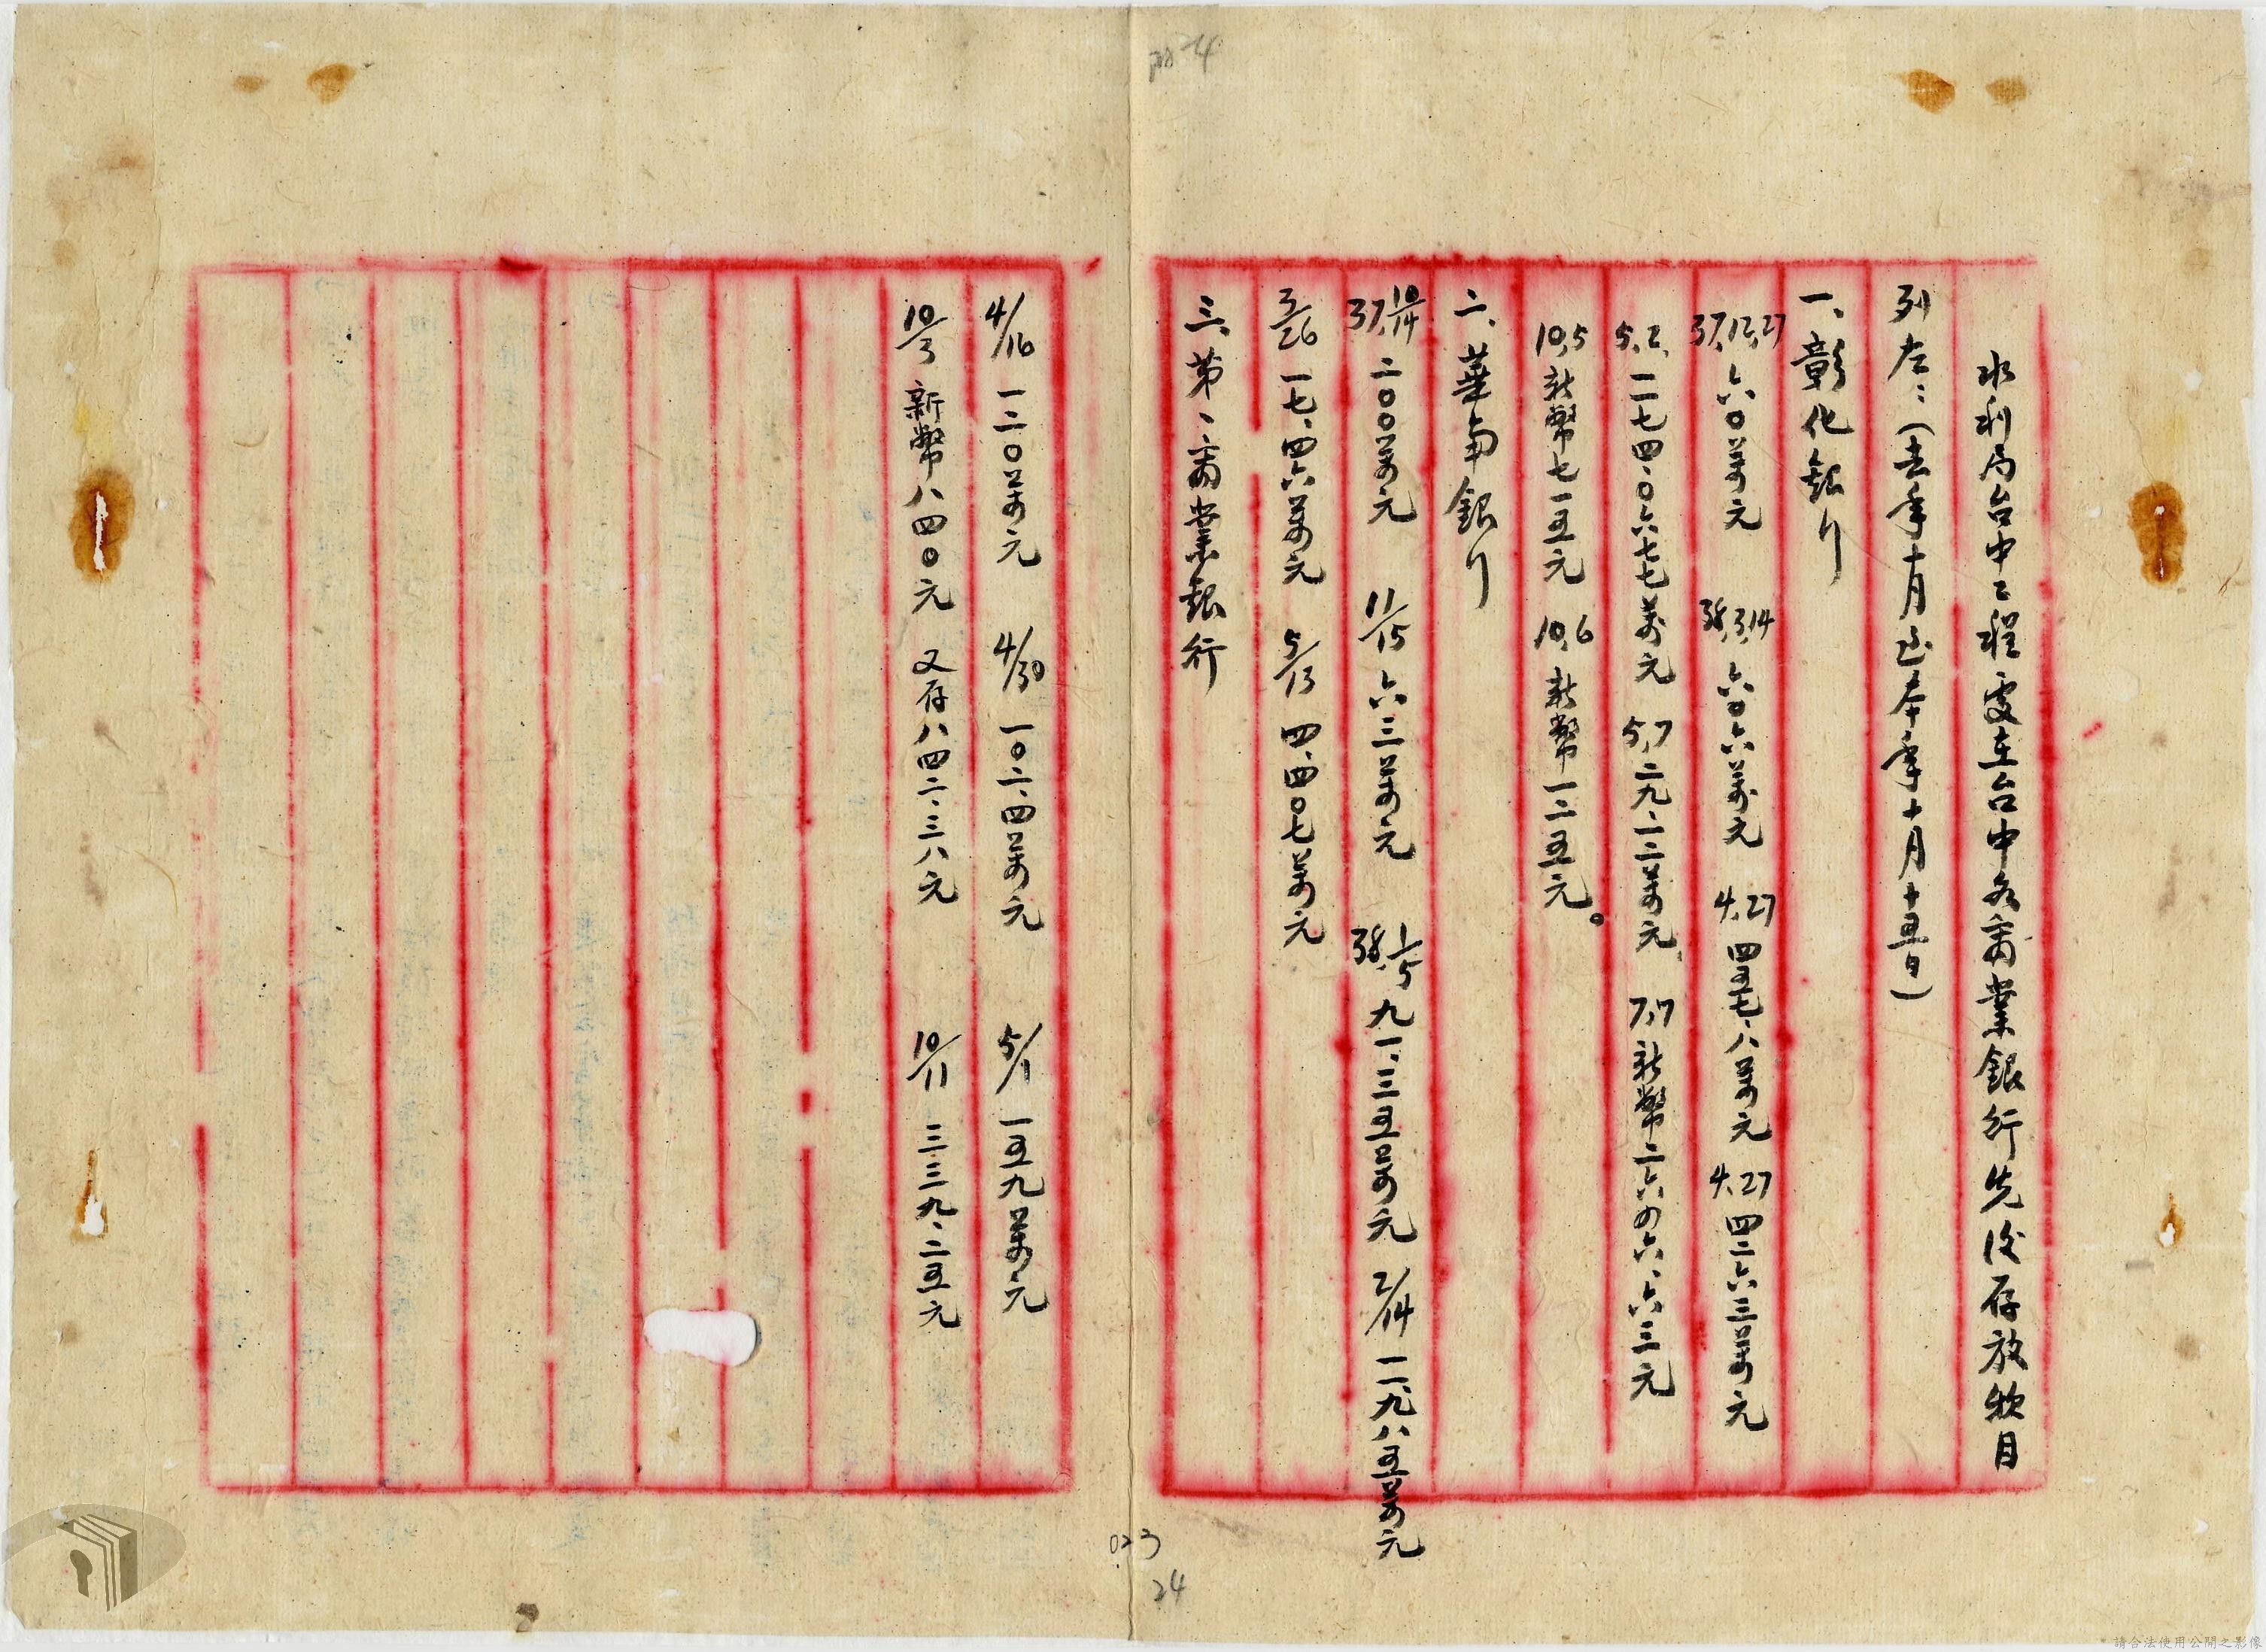 水利局台中工程處在台中各商業銀行先後存放款目
列左：（去年十月迄本年十月十五日）
一、彰化銀行
37,12,27 六〇萬元 38,3,14 六〇六萬元 4,27 四五七、八萬元 4,27 四二六三萬元
5,2, 一七四〇六七七萬元 5,7 二九、一二萬元 7,7 新幣二六四六、六三元
10,5 新幣七一五元 10,6 新幣一二五元。
二、華南銀行
37,10/14 二〇〇萬元 11/15 六三萬元 38,1/5 九一、三五萬元 2/14 一一九八五萬元
3/26 一七、四六萬元 5/13 四、四〇七萬元
三、第一商業銀行
4/16 一二〇萬元 4/30 一〇二、四萬元 5/1 一五九萬元
10/3 新幣八四〇元 又存八四二、三八元 10/11 三三九、二五元
023
24
請合法使用公開之影像